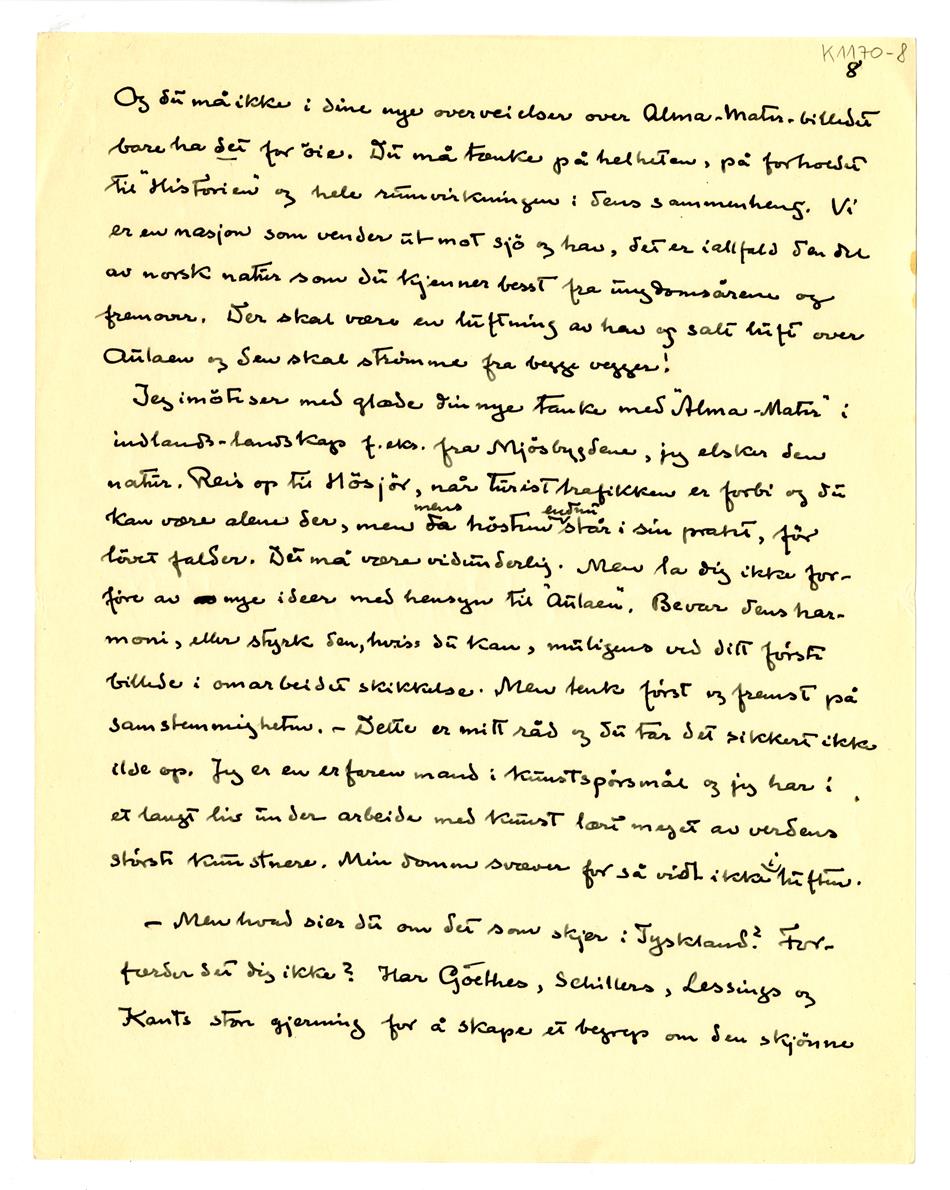 K1170-8
8
Og du må ikke i dine nye overveielser over Alma-Mater-billedet
bare ha det for öie. Du må tænke på helheten, på forholdet
til "Historien" og hele rumvirkningen i dens sammenheng. Vi
er en nasjon som vender ut mot sjö og hav, det er iallfald den del
av norsk natur som du kjenner besst fra ungdomsårene og
fremover. Der skal være en luftning av hav og salt luft over
Aulaen og den skal strömme fra begge vegger!
Jeg imöteser med glæde din nye tanke med "Alma-Mater" i
indlands-landskap f.eks. fra Mjösbygdene, jeg elsker den
natur. Reis op til Hösjör, når turisttrafikken er forbi og du
mens endnu
kan være alene der, men da hösten står i sin prakt, för
lövet falder. Det må være vidunderlig. Men la dig ikke for-
före av nye ideer med hensyn til "Aulaen". Bevar dens har-
moni, eller styrk den, hvis du kan, muligens ved ditt förste
billede i omarbeidet skikkelse. Men tenk först og fremst på
samstemmigheten. – Dette er mitt råd og du tar det sikkert ikke
ilde op. Jeg er en erfaren mand i kunstspörsmål og jeg har i
et langt liv under arbeide med kunst lært meget av verdens
störste kunstnere. Min domm svæver for så vidt ikke i luften.
– Men hvad sier du om det som skjer i Tyskland? For-
færder det dig ikke? Har Göethes, Schillers, Lessings og
Kants store gjerning for å skape et begrep om den skjönne